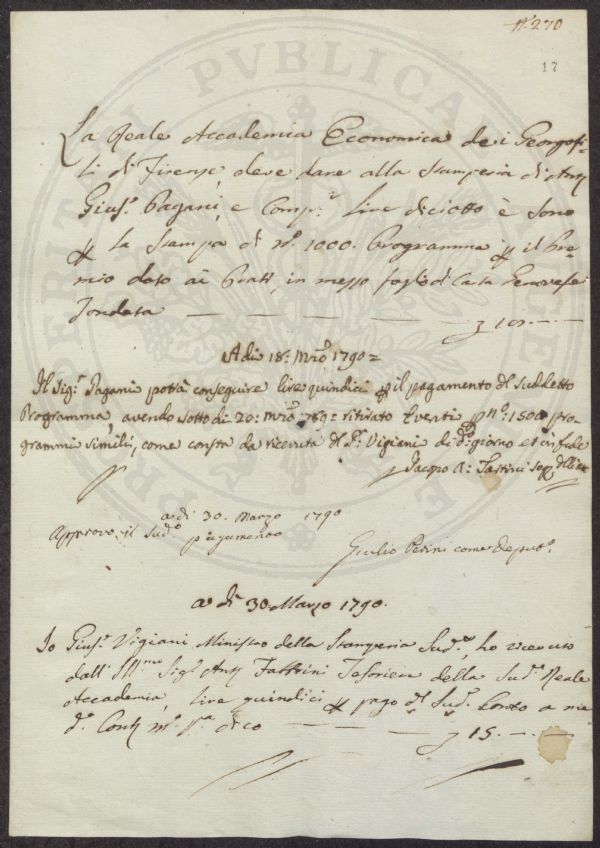 N° 270
17
La Reale Accademia Economica dei Georgofi-
li di Firenze, deve dare alla Stamperia di Ant.
Gius. Pagani, e Comp. Lire diciotto è Sono
p la Stampa di N° 1000. Programma p il Pre-
mio dato ai Prati, in mezzo foglio di Carta Genovese
Tondata
A di 18: Mrzo 1790=
Il Sig.r Pagani potrà conseguire lire quindici p il pagamento del suddetto
Programma, avendo sotto di 20: Mrzo 789= ritirato lire venti p n° 1500 pro-
grammi simili, come consta da ricevuta del S.r Vigiani di d.o giorno et in fede
Jacopo A: Tartini
a di 30. Marzo 1790
Approvo il Sud.o pagamento
Giulio Perini come Deput.o
a di 30 Marzo 1790.
Io Gius.e Vigiani Ministro della Stamperia Sud.a, ho ricevuto
dall' Ill.mo Sig.r Ant. Fabbrini Tesoriere della Sud.a Reale
Accademia, lire quindici p pago del Sud.o Conto a me
d.o Cont. m.o p.a dico 15.
PVBLICAE